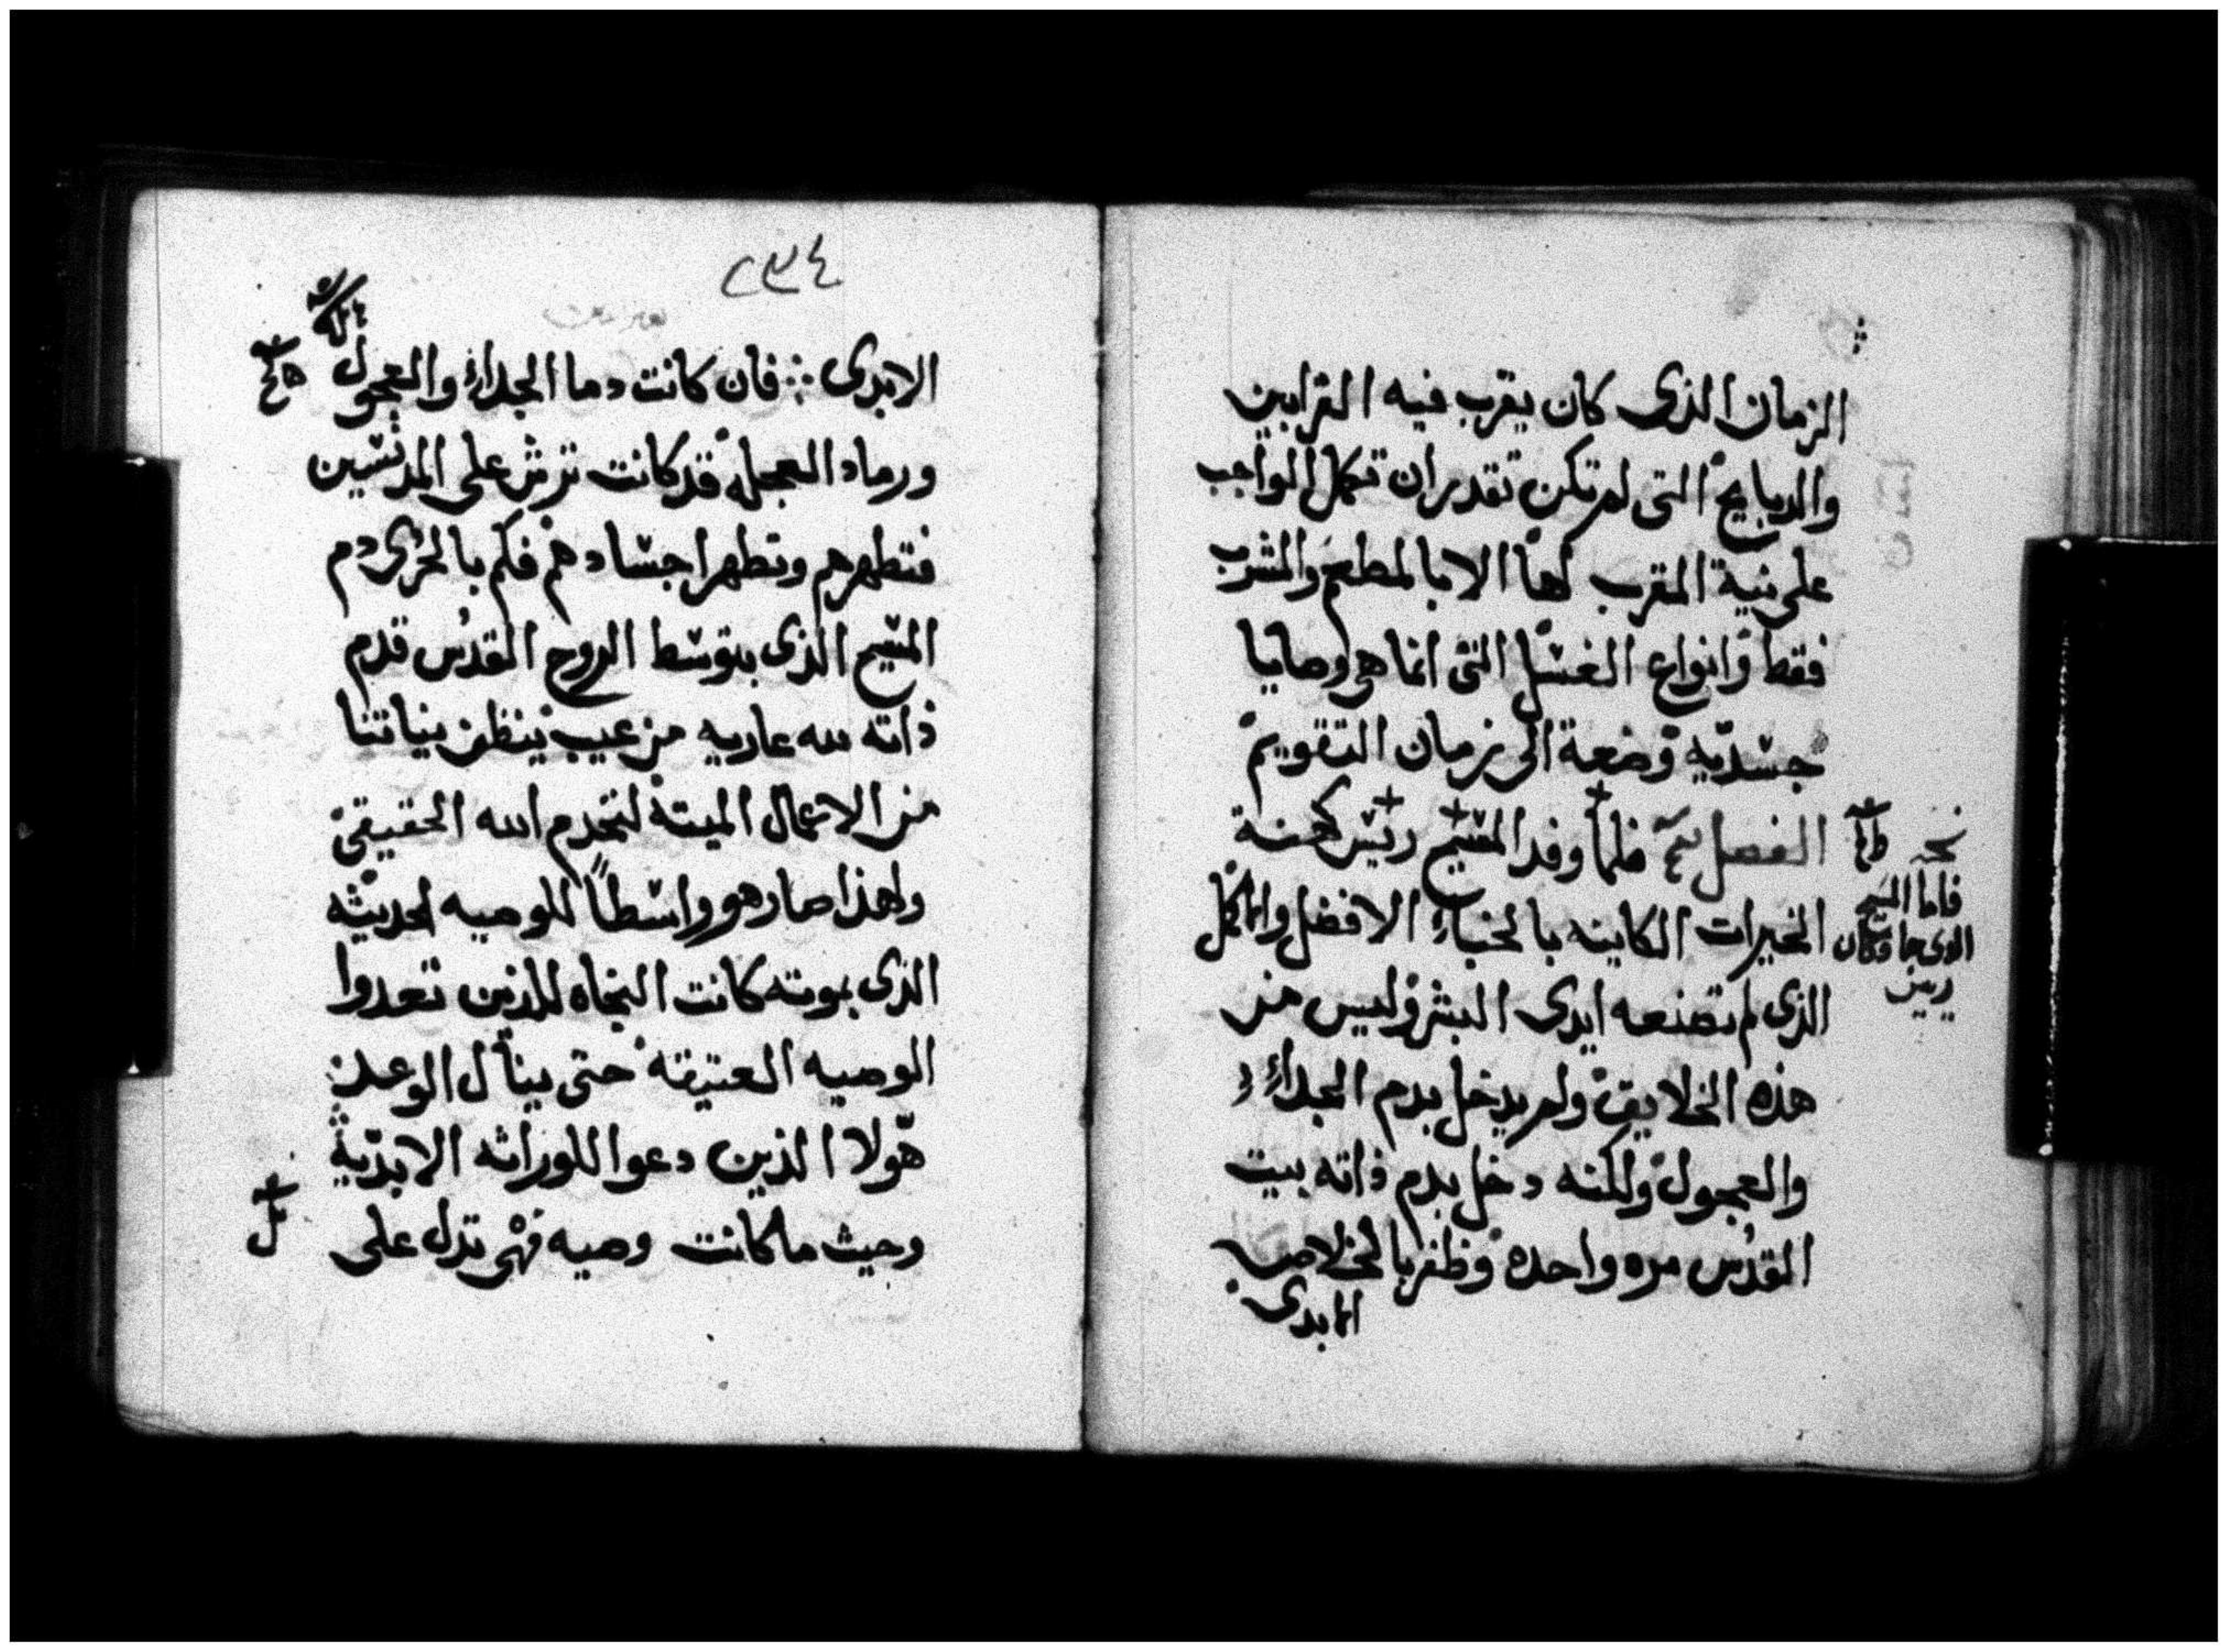 الزمان الذى كان يقرب فيه القرابين
والدبايح التى لم تكن تقدر ان تكمل الواجب
على نية المقرب لها الا بالمطعم والمشرب
فقط وانواع الغسل التى انما هى وصايا
جسديه وضعة الى زمان التقويم
الفصل فلما وفد المسيح ريس كهنة
الخيرات الكاينه بالخباء الافضل والاكمل
الذى لم تصنعه ايدى البشر وليس من
هذه الخلايق ولم يدخل بدم الجداء
والعجول ولكنه دخل بدم ذاته بيت
القدس مره واحده وظفر بالخلاص
الابدى
نخه
فاما المسيح
الدى جا وكان
ريس
٢٣٤
الابدى فان كانت دما الجداء والعجول
ورماد العجله قد كانت ترش على المدنسين
فتطهرهم وتطهر اجسادهم فكم بالحرى دم
المسيح الذى بتوسط الروح القدس قدم
ذاته لله عاريه من عيب ينظف نياتنا
من الاعمال الميته لنخدم الله الحقيقى
ولهذا صار هو واسطاً للوصيه الحديثه
الذى بموته كانت النجاه للذين تعدوا
الوصيه العتيقه حتى ينال الوعد
هولا الذين دعوا للوراثه الابديه
وحيث ما كانت وصيه فهى تدل على